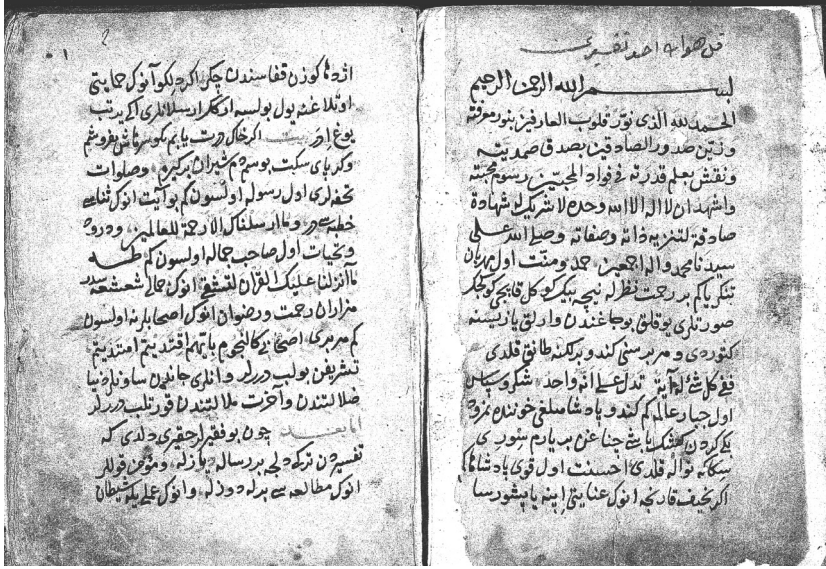 قل هو الله احد تفسيرى
بسم الله الرحمن الرحيم
الحمد لله الذى نور قلوب العارفين بنور معرفته
وزين صدور الصادقين بصدق صمديته
ونقش بعلم قدرته فى فواد المحبين رسوم محبته
واشهد ان لا اله الا الله وحده لا شريك له شهادة
صادقة لتنزيه ذاته وصفاته وصلى الله على
سيدنا محمد واله اجمعين حمد ومنت اول مهربان
تنكريا كم بر رحمت نظرله نيچه بيك كوكل
صورتلرى يوقلق بوجاغندن وارلق يازيسنه
كتوردى و هر برسنى كندو برلكنه طانق قلدى
ففى كل شئ له آية تدل على انه واحد شكر وسپاس
اول جبار عالمه كم كندو پادشاهلغى خوننده نمرود
بكى كردن بر يارم سڭورى
سكانه نواله قلدى احسنت اول قوى پادشاها كم
اكر نحيف قارنجه انوك عنايتى اپنه ياپيشورسا
اژدها كوزن قفاسندن چكر اكر دلكو آنوك حمايتى
اوتلاغنه يول بولسه ارسلانلرى
يوغ ايدر بيت اكر خاك درت يابم
وكر پاى سكت بوسم شيران وصلوات
تحفه لرى اول رسوله اولسون كم بو آيت انوك ثناسى
خطبه سيدر وما ارسلناك الا رحمة للعالمين ودرود
وتحيات اول صاحب جماله اولسون كم طه
ما انزلنا عليك القرآن لتشقى انوك جمالى شعشعه سيدر
هزاران رحمت ورضوان انوك اصحابارنه اولسون
كم هر برى اصحابى كالنجوم بايهم اقتديتم اهتديتم
تشريفن بولب دررلر وانلرى جاندن ساونلر دنيا
ضلالتندن وآخرت ملالتندن قورتلب دررلر
اما بعد چون بو فقير حقيرى دلدى كه
تفسيردن تركه دلجه بر رساله يازله ومؤمن قوللر
انوك مطالعه سى برله دوزله وانوك عملى يله شيطان